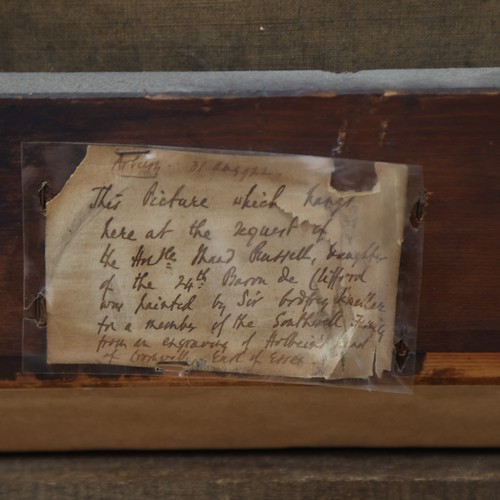 31
This Picture which hangs
here at the request of
the Honble Maud Russell, daughter
of the 24th Baron de Clifford
was painted by Sir Godfrey Kneller
for a member of the Southwell Family
from an engraving of Holbein's
of Cromwell, Earl of Essex